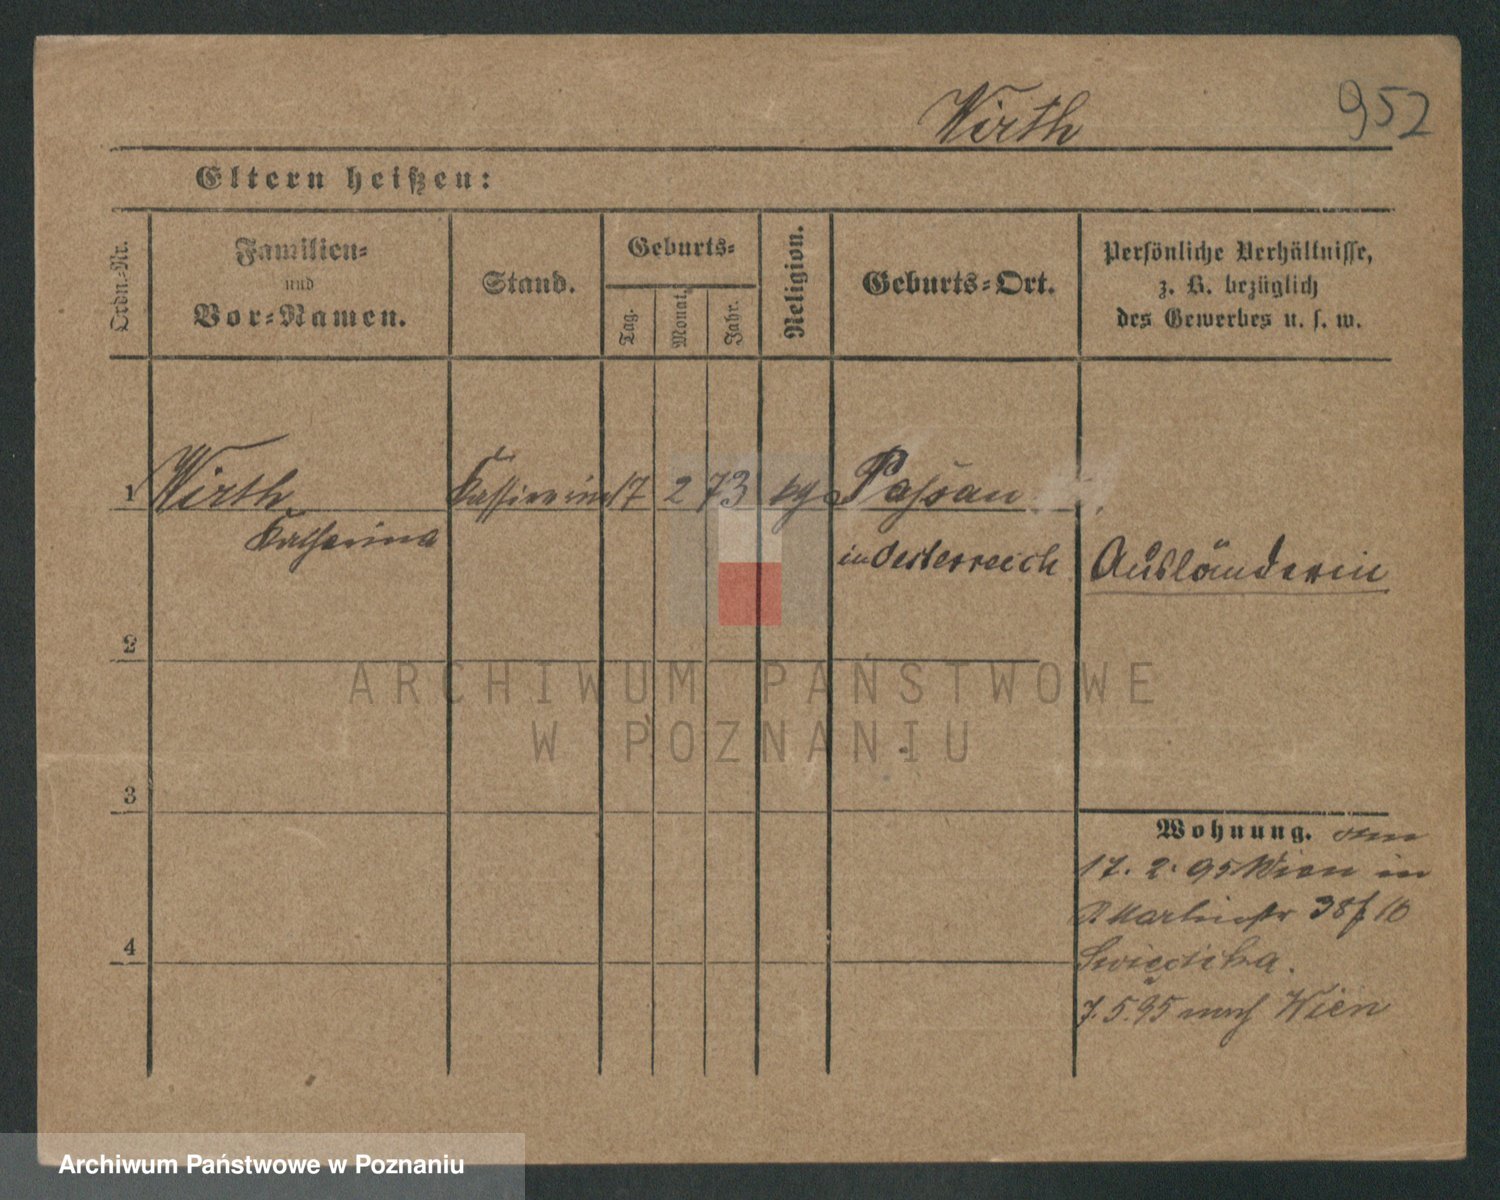 Wirth 952
Eltern heißen:
Ordn.-Nr.
Familien-
und
Vor-Namen.
Stand.
Geburts-
Tag.
Monat.
Jahr.
Religion.
Geburts-Ort.
Persönliche Verhältnisse,
z. B. bezüglich
des Gewerbes u. s. w.
1 Wirth Kassirerin 17 2 73 Passau
Katharina in Oesterreich Ausländerin
2
ARCHIWUM PAŃSTWOWE
W POZNANIU
3
Wohnung.
17. 2. 95 Wien in
Martinstr 38
4
7. 5. 95 nach Wien
Archiwum Państwowe w Poznaniu